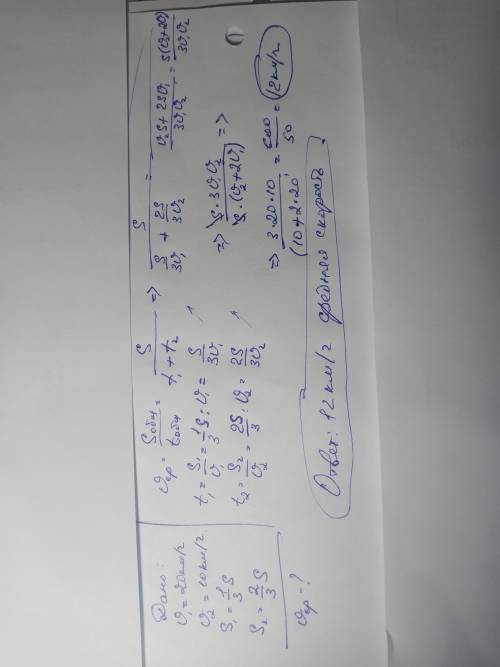 Дано:
v₁ = 20 км/ч
v₂ = 10 км/ч.
S₁ = 1/3 S
S₂ = 2/3 S
vср = ?
vср = Sобщ / tобщ = S / (t₁ + t₂) => S / (S/3v₁ + 2S/3v₂) = S / ((v₂S + 2Sv₁) / 3v₁v₂) = S(v₂+2v₁) / 3v₁v₂
t₁ = S₁/v₁ = 1/3 S : v₁ = S/3v₁
t₂ = S₂/v₂ = 2S/3 : v₂ = 2S/3v₂
=> S · 3v₁v₂ / S · (v₂ + 2v₁) =>
=> 3·20·10 / (10+2·20) = 600/50 = 12 км/ч.
Ответ: 12 км/ч средняя скорость.